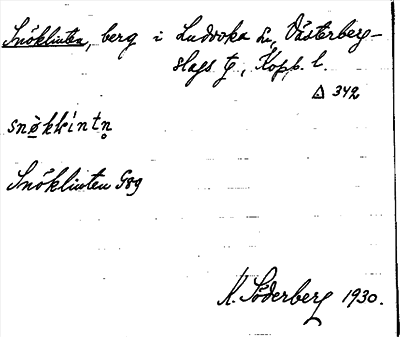 Snöklinten, berg i Ludvika sn, Västerberg-
slags tg, Kopp. l.
△ 342
snø̠kkl'intn̥
Snöklinten G89
K. Söderberg 1930.